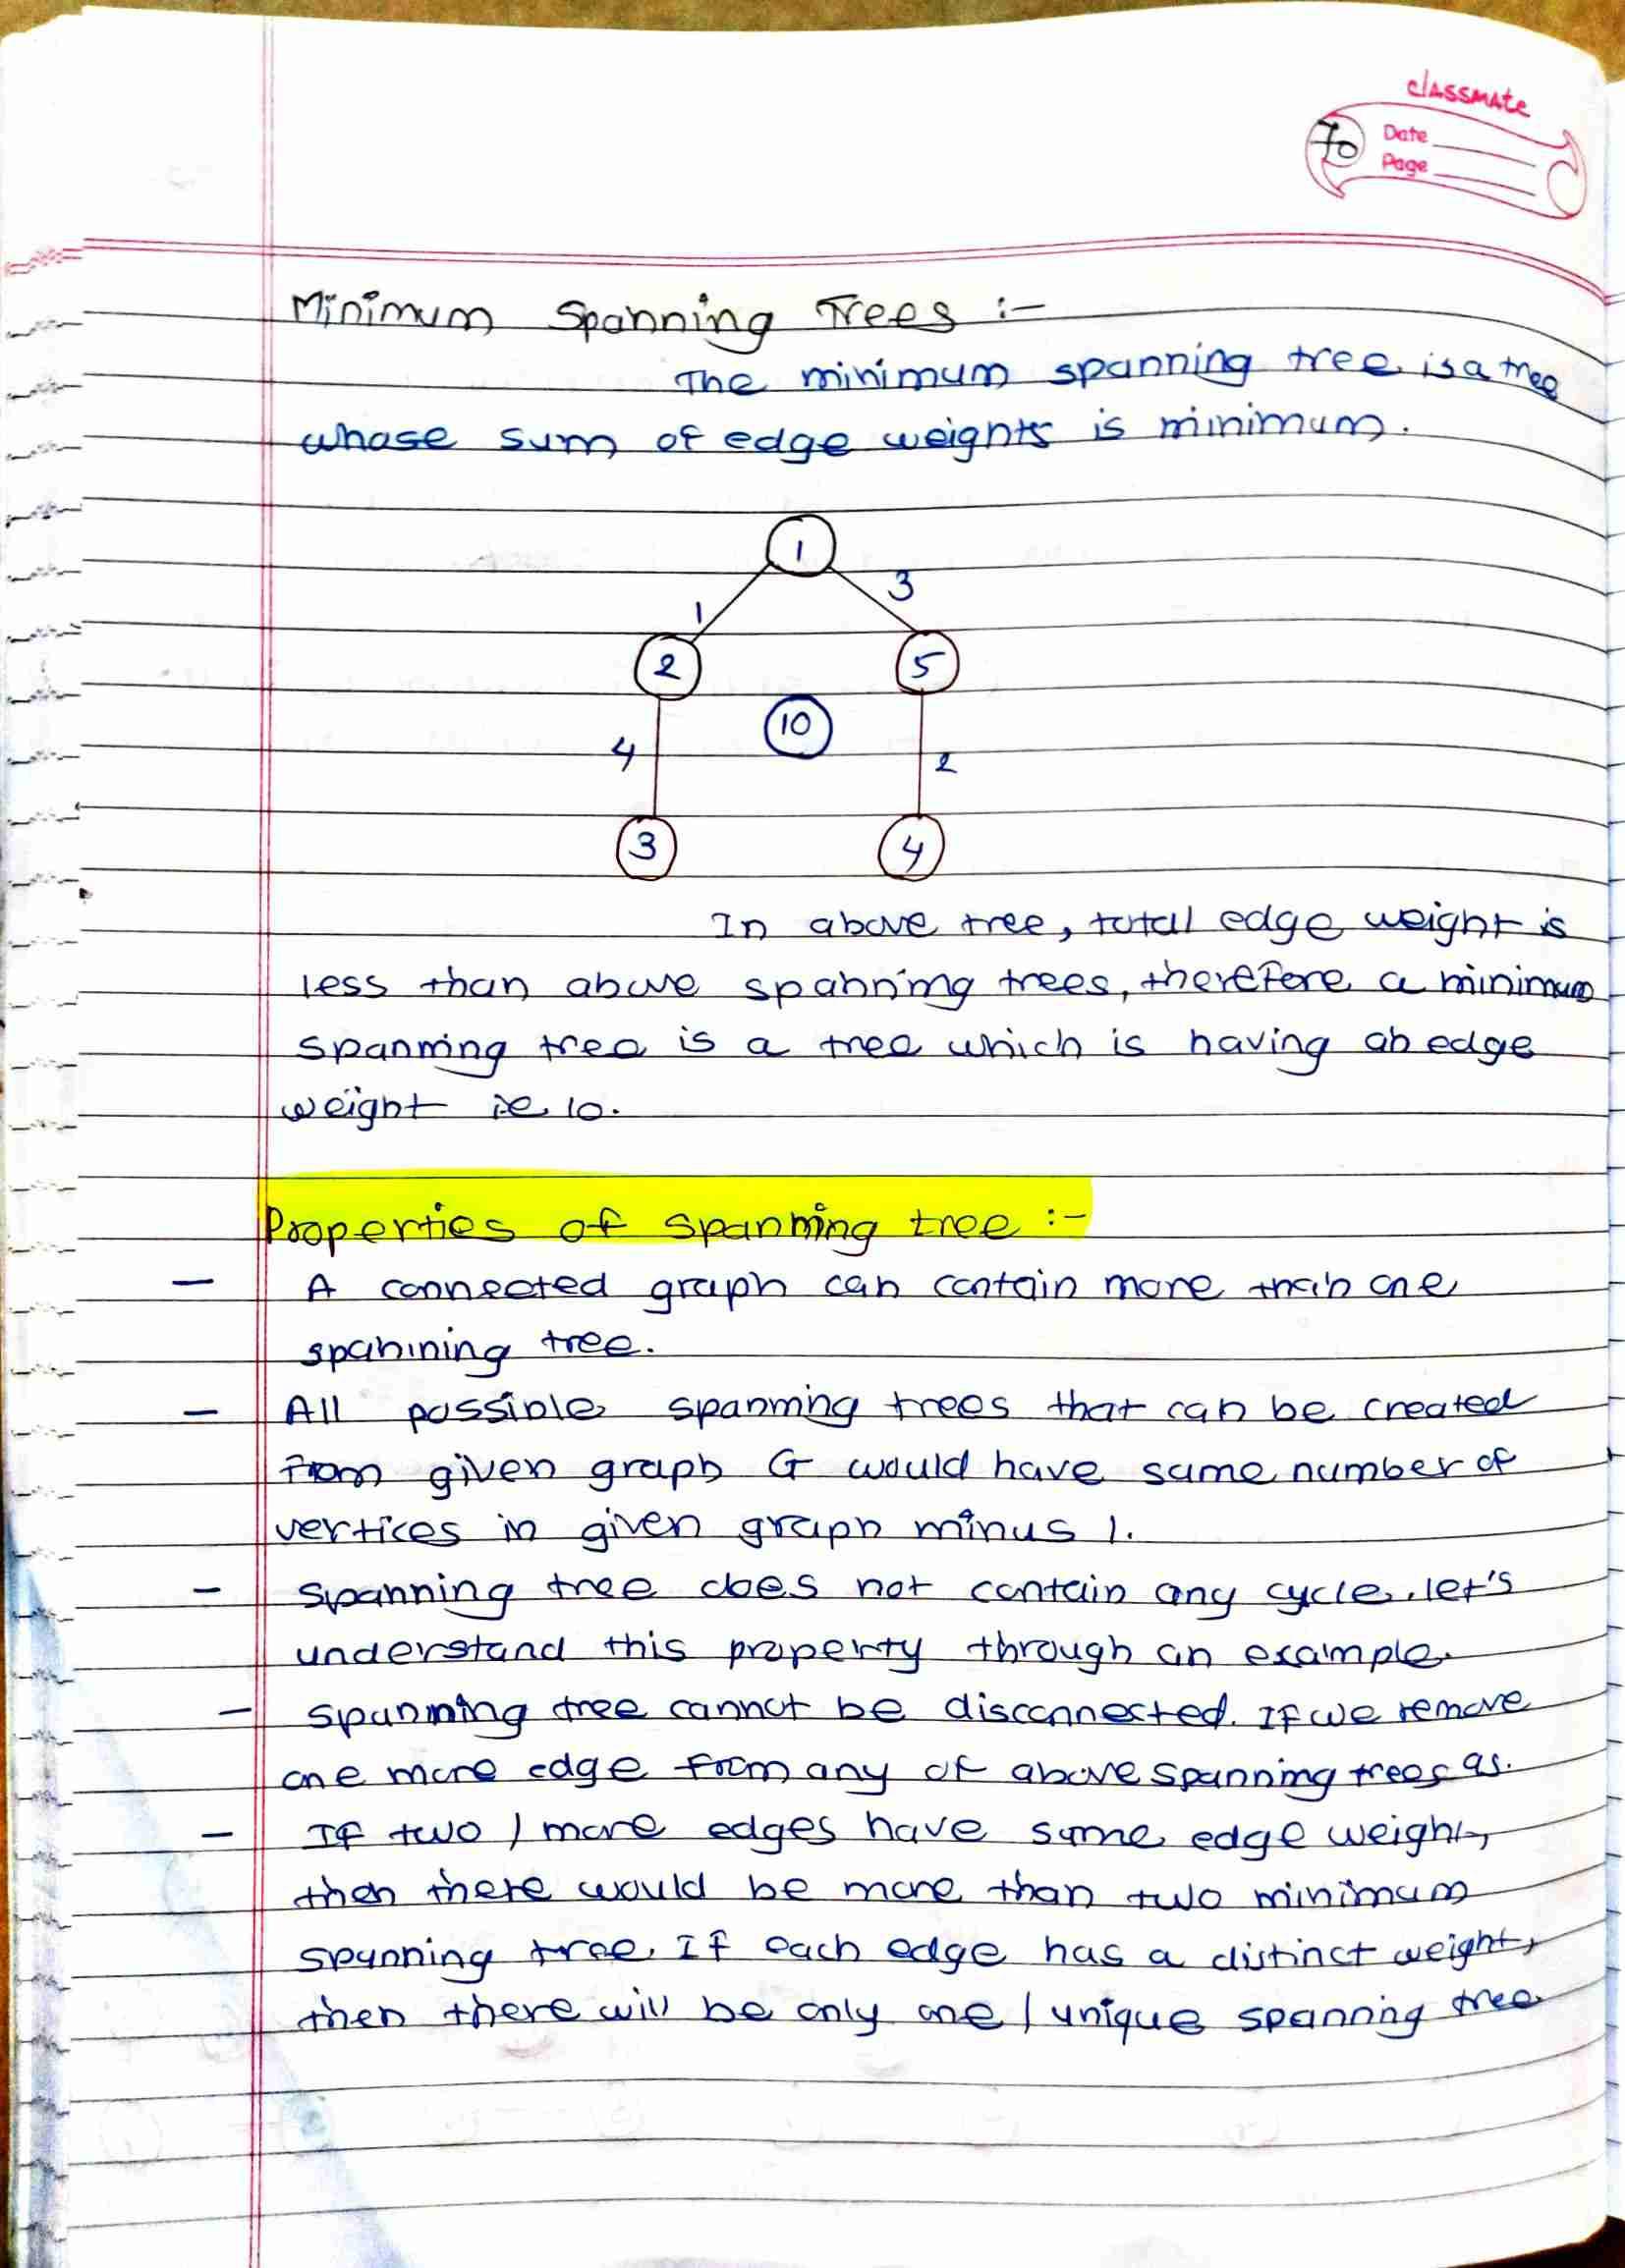 classmate
70
Date
Page
Minimum Spanning Trees :-
The minimum spanning tree is a tree
whose sum of edge weights is minimum.
1
1
3
2
5
10
4
2
3
4
In above tree, total edge weight is
less than above spanning trees, therefore a minimum
spanning tree is a tree which is having an edge
weight ie 10.
Properties of spanning tree :-
— A connected graph can contain more than one
spanining tree.
— All possible spanning trees that can be created
from given graph G would have same number of
vertices in given graph minus 1.
— spanning tree does not contain any cycle. let's
understand this property through an example.
— spanning tree cannot be disconnected. If we remove
one more edge from any of above spanning trees as.
— If two / more edges have same edge weight,
then there would be more than two minimum
spanning tree. If each edge has a distinct weight,
then there will be only one / unique spanning tree